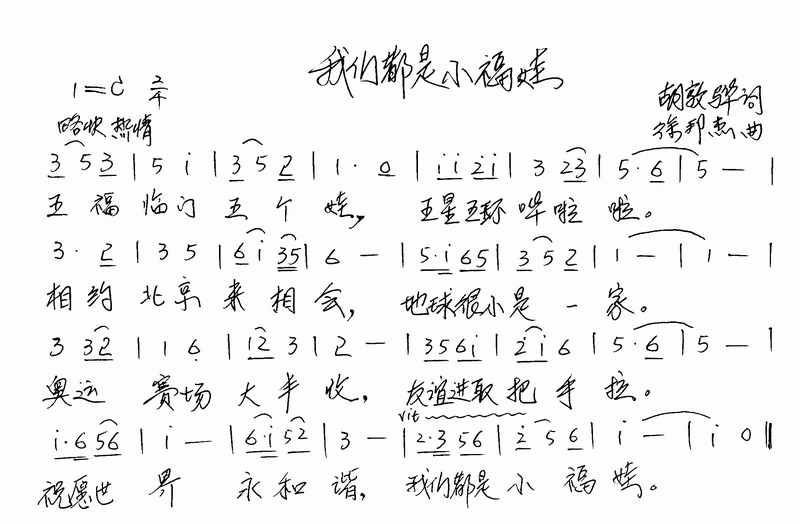 我们都是小福娃
1=C 2/4
胡敦骅词
略快 热情
徐邦杰曲
3 5 3 | 5 i | 3 5 2 | 1· 0 | i i 2 i | 3 2 3 | 5· 6 | 5 — |
五福临门五个娃, 五星五环哗啦啦。
3· 2 | 3 5 | 6 i 3 5 | 6 — | 5· i 6 5 | 3 5 2 | 1 — | 1 — |
相约北京来相会, 地球很小是一家。
3 3 2 | 1 1 6 | 1 2 3 | 2 — | 3 5 6 i | 2 i 6 | 5· 6 | 5 — |
奥运赛场大丰收, 友谊进取把手拉。
vit
i· 6 5 6 | i — | 6· i 5 2 | 3 — | 2· 3 5 6 | 2 5 6 | i — | i 0 ‖
祝愿世界永和谐, 我们都是小福娃。